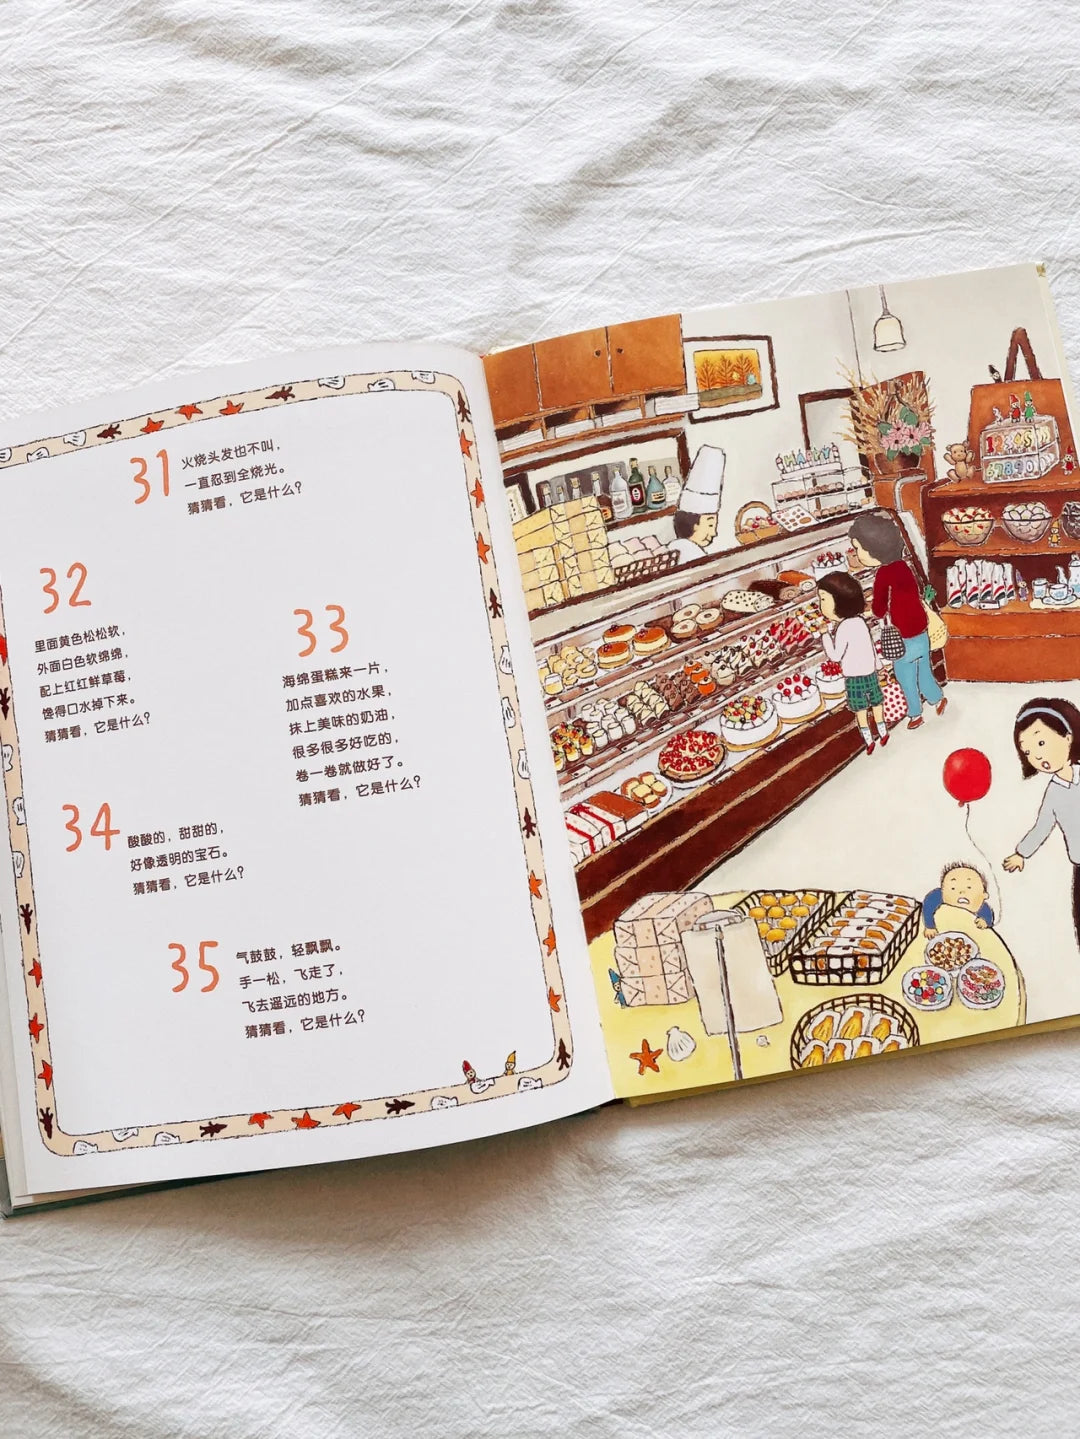 31
火烧头发也不叫，
一直忍到全烧光。
猜猜看，它是什么？
32
里面黄色松松软，
外面白色软绵绵，
配上红红鲜草莓，
馋得口水掉下来。
猜猜看，它是什么？
33
海绵蛋糕来一片，
加点喜欢的水果，
抹上美味的奶油，
很多很多好吃的，
卷一卷就做好了。
猜猜看，它是什么？
34
酸酸的，甜甜的，
好像透明的宝石。
猜猜看，它是什么？
35
气鼓鼓，轻飘飘。
手一松，飞走了，
飞去遥远的地方。
猜猜看，它是什么？